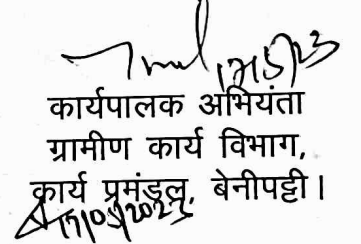 17/5/23
कार्यपालक अभियंता
ग्रामीण कार्य विभाग,
कार्य प्रमंडल, बेनीपट्टी।
17/05/2023